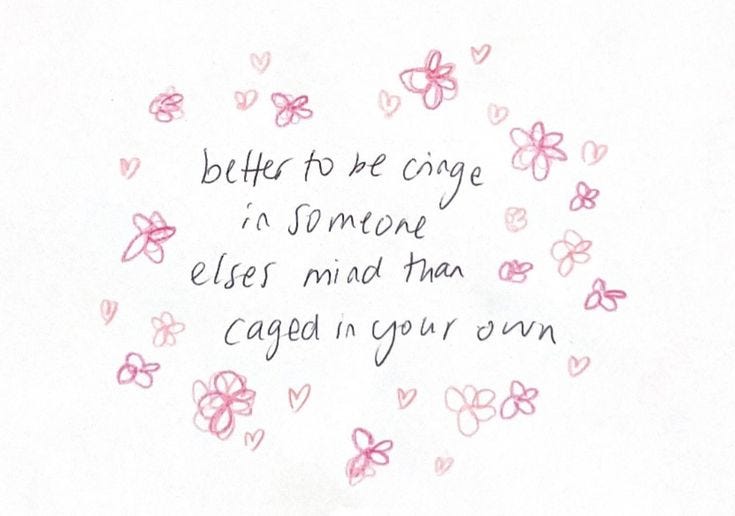 better to be cringe
in someone
elses mind than
caged in your own